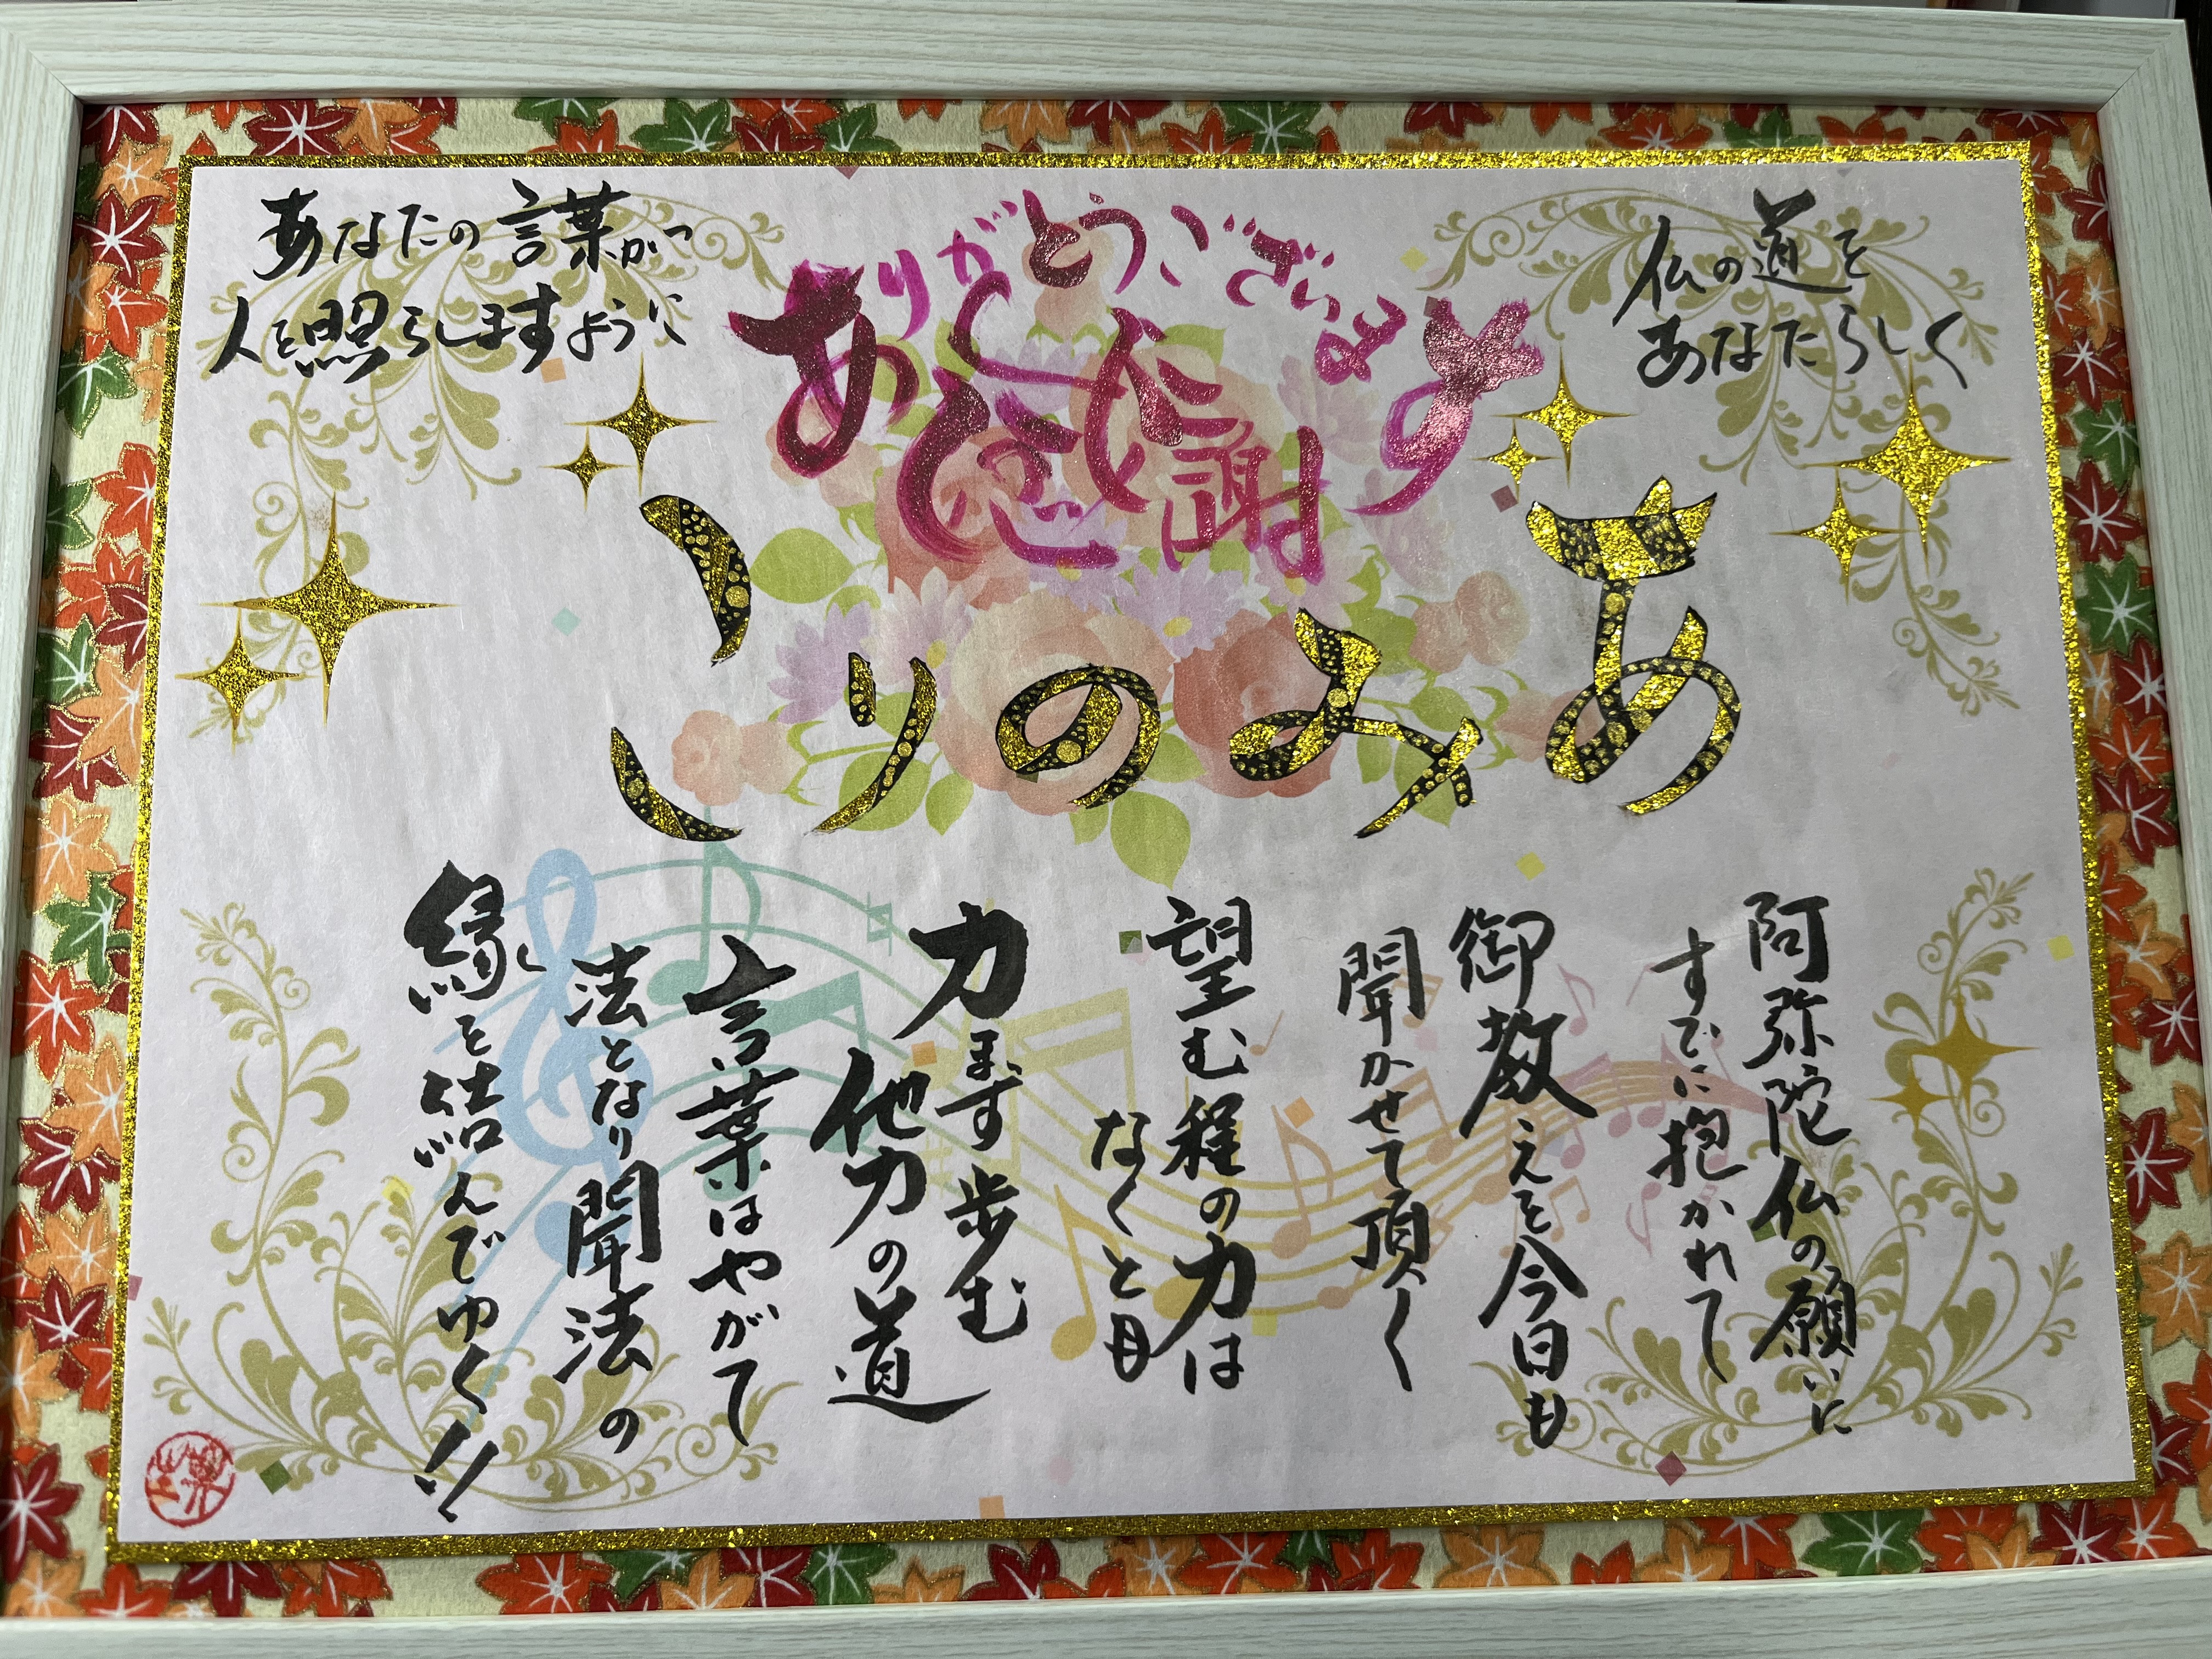 仏の道を
あなたらしく
ありがとうございます
感謝
あなたの言葉が
人を照らしますように
あみのりこ
阿弥陀仏の願いに
すでに抱かれて
御教えを今日も
聞かせて頂く
望む程の力は
なくとも
力まず歩む
他力の道
言葉はやがて
法となり聞法の
縁を結んでゆく!!